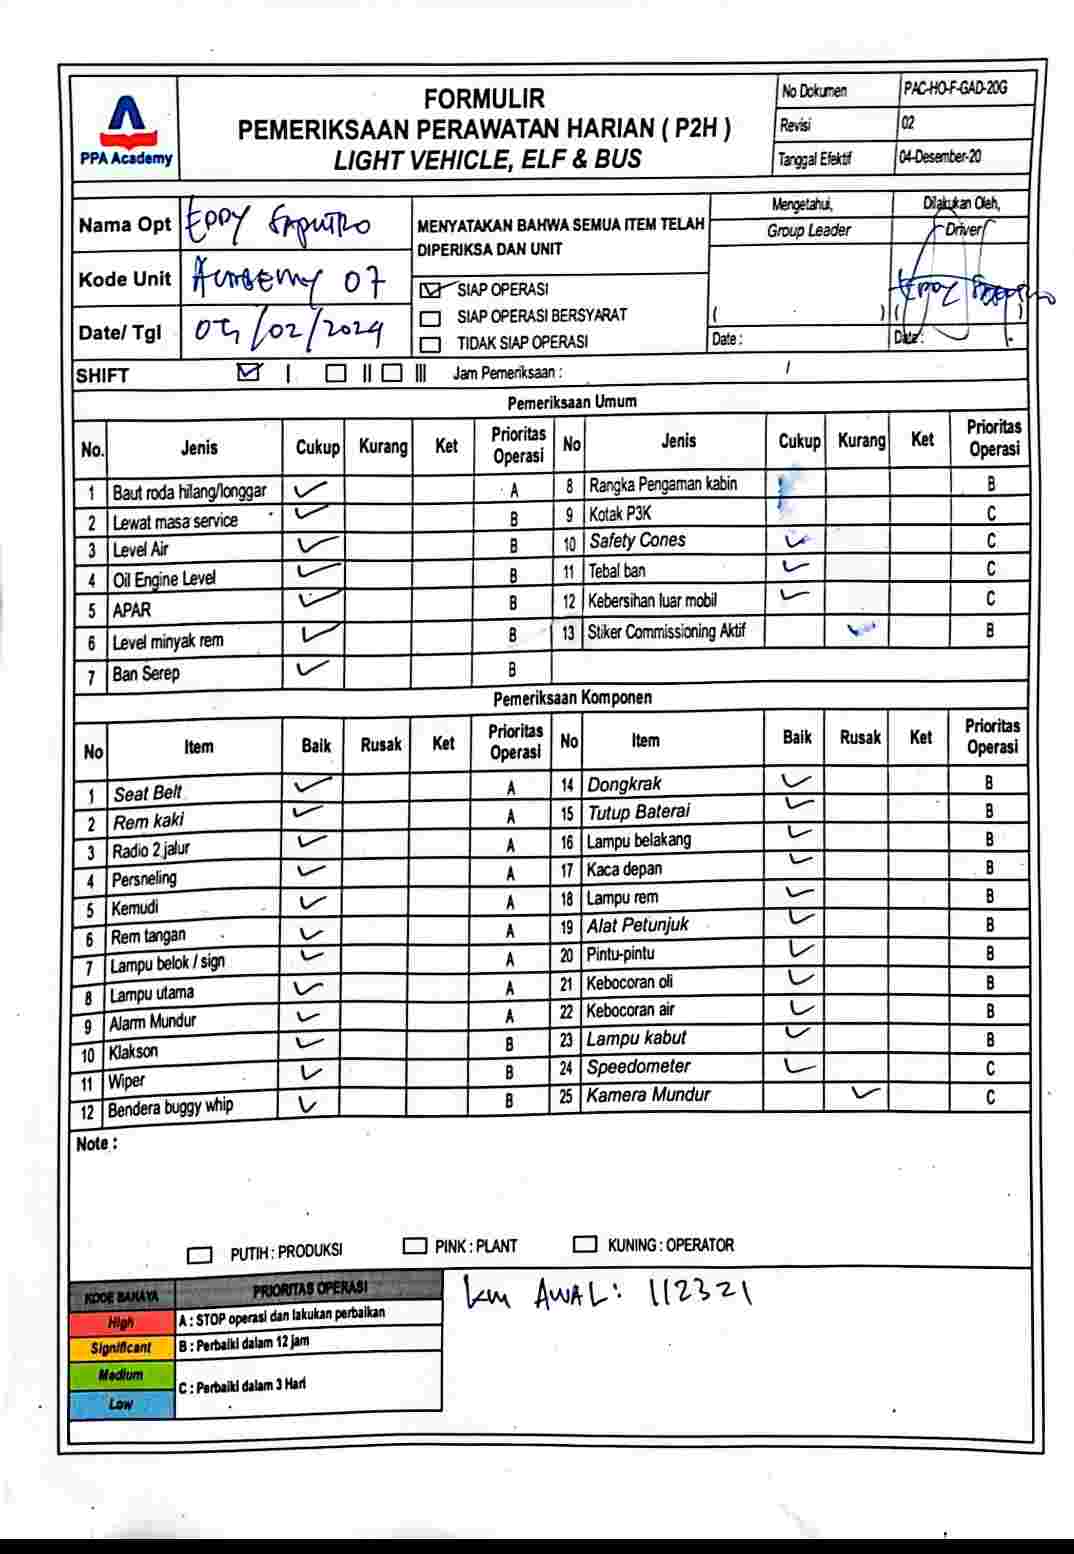 PPA Academy
FORMULIR
PEMERIKSAAN PERAWATAN HARIAN ( P2H )
LIGHT VEHICLE, ELF & BUS
No Dokumen PAC-HO-F-GAD-20G
Revisi 02
Tanggal Efektif 04-Desember-20
Nama Opt EDDY SAPUTRO
Kode Unit ACADEMY 07
Date/ Tgl /02/2024
MENYATAKAN BAHWA SEMUA ITEM TELAH
DIPERIKSA DAN UNIT
SIAP OPERASI
SIAP OPERASI BERSYARAT
TIDAK SIAP OPERASI
Mengetahui, Dilakukan Oleh,
Group Leader Driver
( ) ( EDDY SAPUTRO )
Date : Date :
SHIFT I II III Jam Pemeriksaan : /
Pemeriksaan Umum
No. Jenis Cukup Kurang Ket Prioritas Operasi No Jenis Cukup Kurang Ket Prioritas Operasi
1 Baut roda hilang/longgar ✓ A 8 Rangka Pengaman kabin B
2 Lewat masa service ✓ B 9 Kotak P3K C
3 Level Air ✓ B 10 Safety Cones ✓ C
4 Oil Engine Level ✓ B 11 Tebal ban ✓ C
5 APAR ✓ B 12 Kebersihan luar mobil ✓ C
6 Level minyak rem ✓ B 13 Stiker Commissioning Aktif ✓ B
7 Ban Serep ✓ B
Pemeriksaan Komponen
No Item Baik Rusak Ket Prioritas Operasi No Item Baik Rusak Ket Prioritas Operasi
1 Seat Belt ✓ A 14 Dongkrak ✓ B
2 Rem kaki ✓ A 15 Tutup Baterai ✓ B
3 Radio 2 jalur ✓ A 16 Lampu belakang ✓ B
4 Persneling ✓ A 17 Kaca depan ✓ B
5 Kemudi ✓ A 18 Lampu rem ✓ B
6 Rem tangan ✓ A 19 Alat Petunjuk ✓ B
7 Lampu belok / sign ✓ A 20 Pintu-pintu ✓ B
8 Lampu utama ✓ A 21 Kebocoran oli ✓ B
9 Alarm Mundur ✓ A 22 Kebocoran air ✓ B
10 Klakson ✓ B 23 Lampu kabut ✓ B
11 Wiper ✓ B 24 Speedometer ✓ C
12 Bendera buggy whip ✓ B 25 Kamera Mundur ✓ C
Note :
PUTIH : PRODUKSI PINK : PLANT KUNING : OPERATOR
KODE BAHAYA PRIORITAS OPERASI
High A : STOP operasi dan lakukan perbaikan
Significant B : Perbaiki dalam 12 jam
Medium
C : Perbaiki dalam 3 Hari
Low
km AWAL: 112321